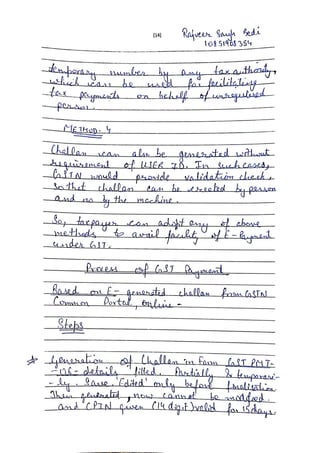 (14) Rajveer Singh Bedi
temporary number by any tax authority,
which can be used for facilitating
tax payments on behalf of unregistered
person.
METHOD: 4
Challan can also be generated without
requirement of USER ID. In such cases,
GSTN would provide validation check,
so that challan can be created by person
and no by the machine.
So, taxpayer can adopt any of above
methods to avail facility of E-Payment
under GST.
Process of GST Payment
Based on E-generated challan from GSTN
Common Portal, online -
Steps
Generation of Challan in Form GST PMT-
-06- details filled. Partially & temporari-
-ly. Save. 'Edited' only before finalization
Then generated, now cannot be modified.
and CPIN given (14 digit) valid for 15 days.